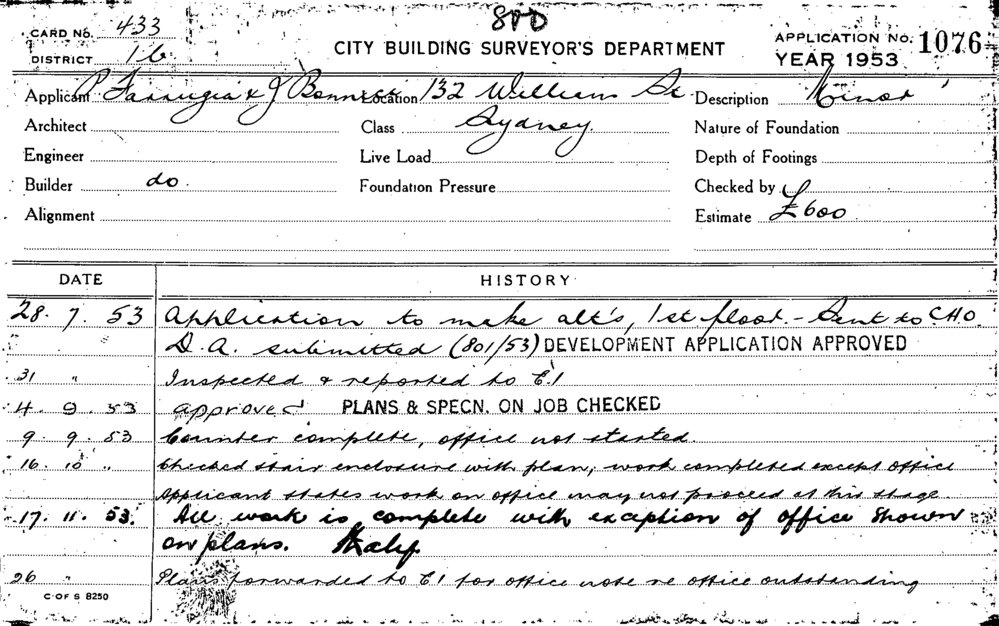 800
CARD No. 433
DISTRICT 16
CITY BUILDING SURVEYOR'S DEPARTMENT
APPLICATION No. 1076
YEAR 1953
Applicant P Farrugia & J Location 132 William St Description Minor
Architect Class Sydney. Nature of Foundation
Engineer Live Load Depth of Footings
Builder do. Foundation Pressure Checked by
Alignment Estimate £600
DATE HISTORY
28. 7. 53 Application to make alt's, 1st floor. - Sent to C.H.O.
D.A. submitted (801/53) DEVELOPMENT APPLICATION APPROVED
31 " Inspected & reported to E.1
4. 9. 53 approved PLANS & SPECN. ON JOB CHECKED
9. 9. 53 Counter complete, office not started.
16. 10 " Checked stair enclosure with plan; work completed except office
Applicant states work on office may not proceed at this stage.
17. 11. 53. All work is complete with exception of office shown
on plans.
26 " Plans forwarded to E1 for office note re office outstanding
C OF S 8250